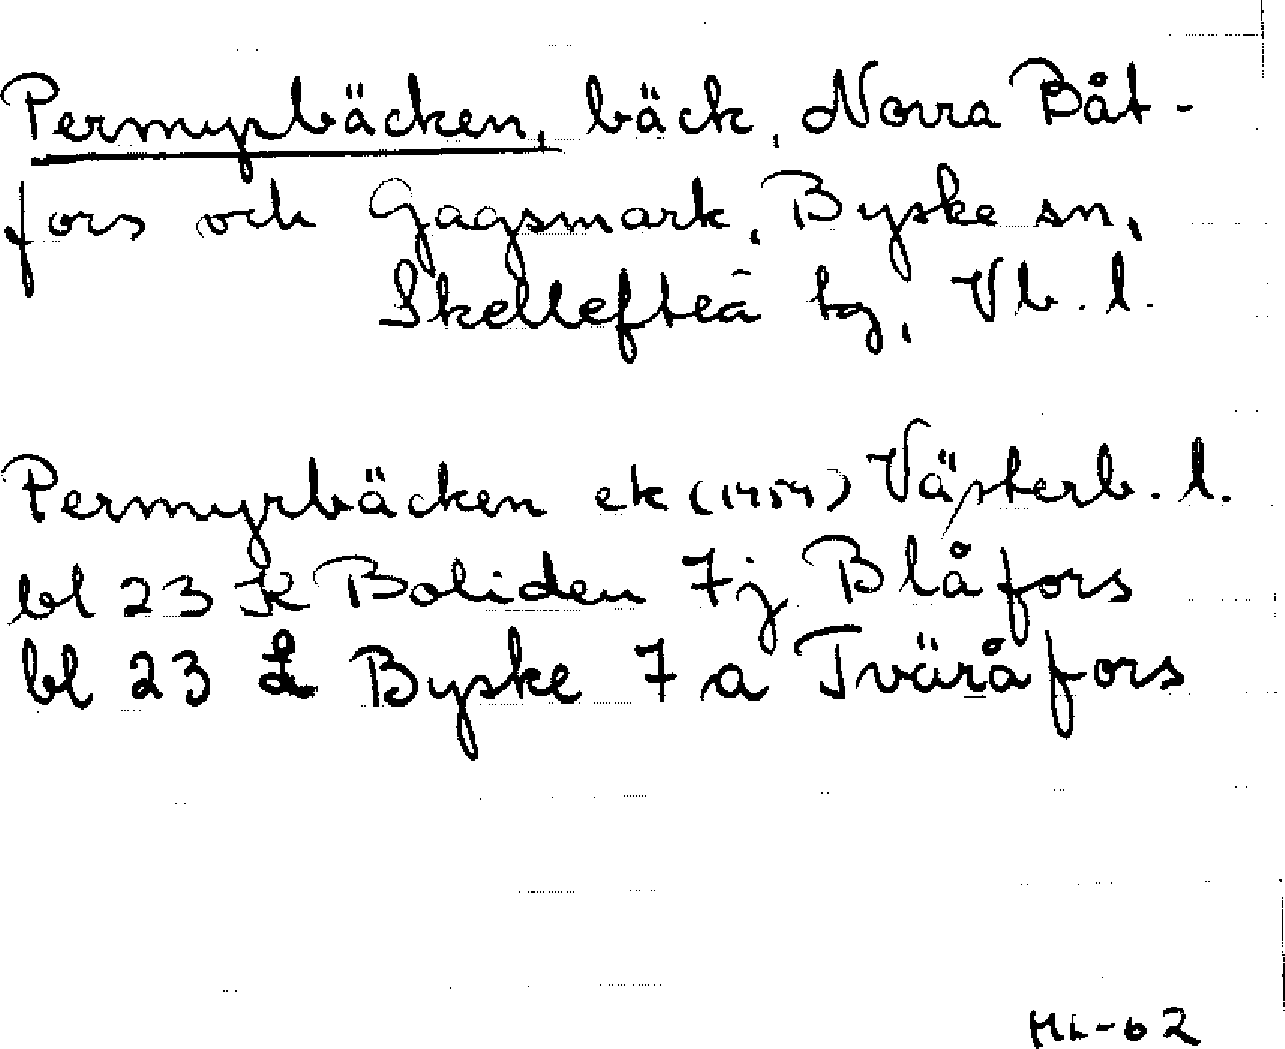 Permyrbäcken, bäck, Norra Båt-
fors och Gagsmark, Byske sn,
Skellefteå tg, Vb. l.
Permyrbäcken ek (1959) Västerb. l.
bl 23 K Boliden 7j Blåfors
bl 23 L Byske 7 a Tväråfors
ML-62